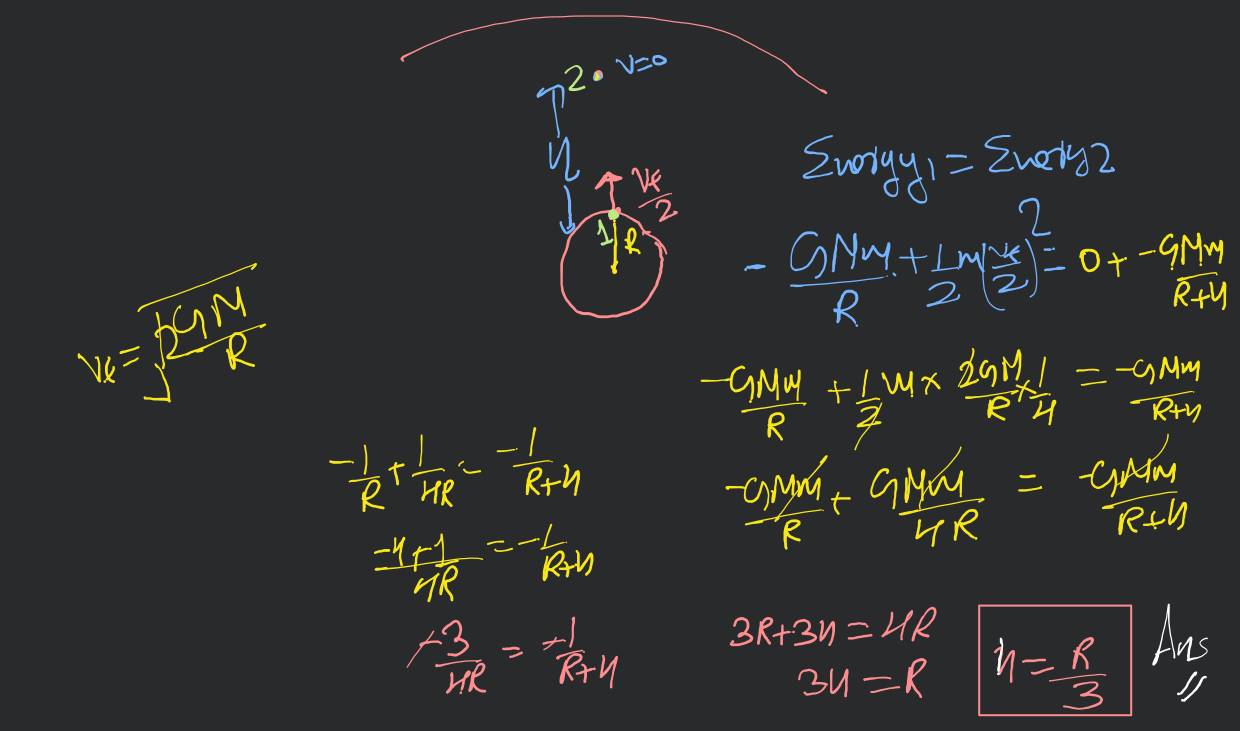 2 v=0
h
Ve/2
1 R
Ve = √(2GM/R)
Energy1 = Energy2
- GMm/R + 1/2 m(Ve/2)^2 = 0 + -GMm/R+h
-GMm/R + 1/2 m × 2GM/R × 1/4 = -GMm/R+h
-GMm/R + GMm/4R = -GMm/R+h
-1/R + 1/4R = -1/R+h
-4+1/4R = -1/R+h
-3/4R = -1/R+h
3R+3h = 4R
3h = R
h = R/3 Ans